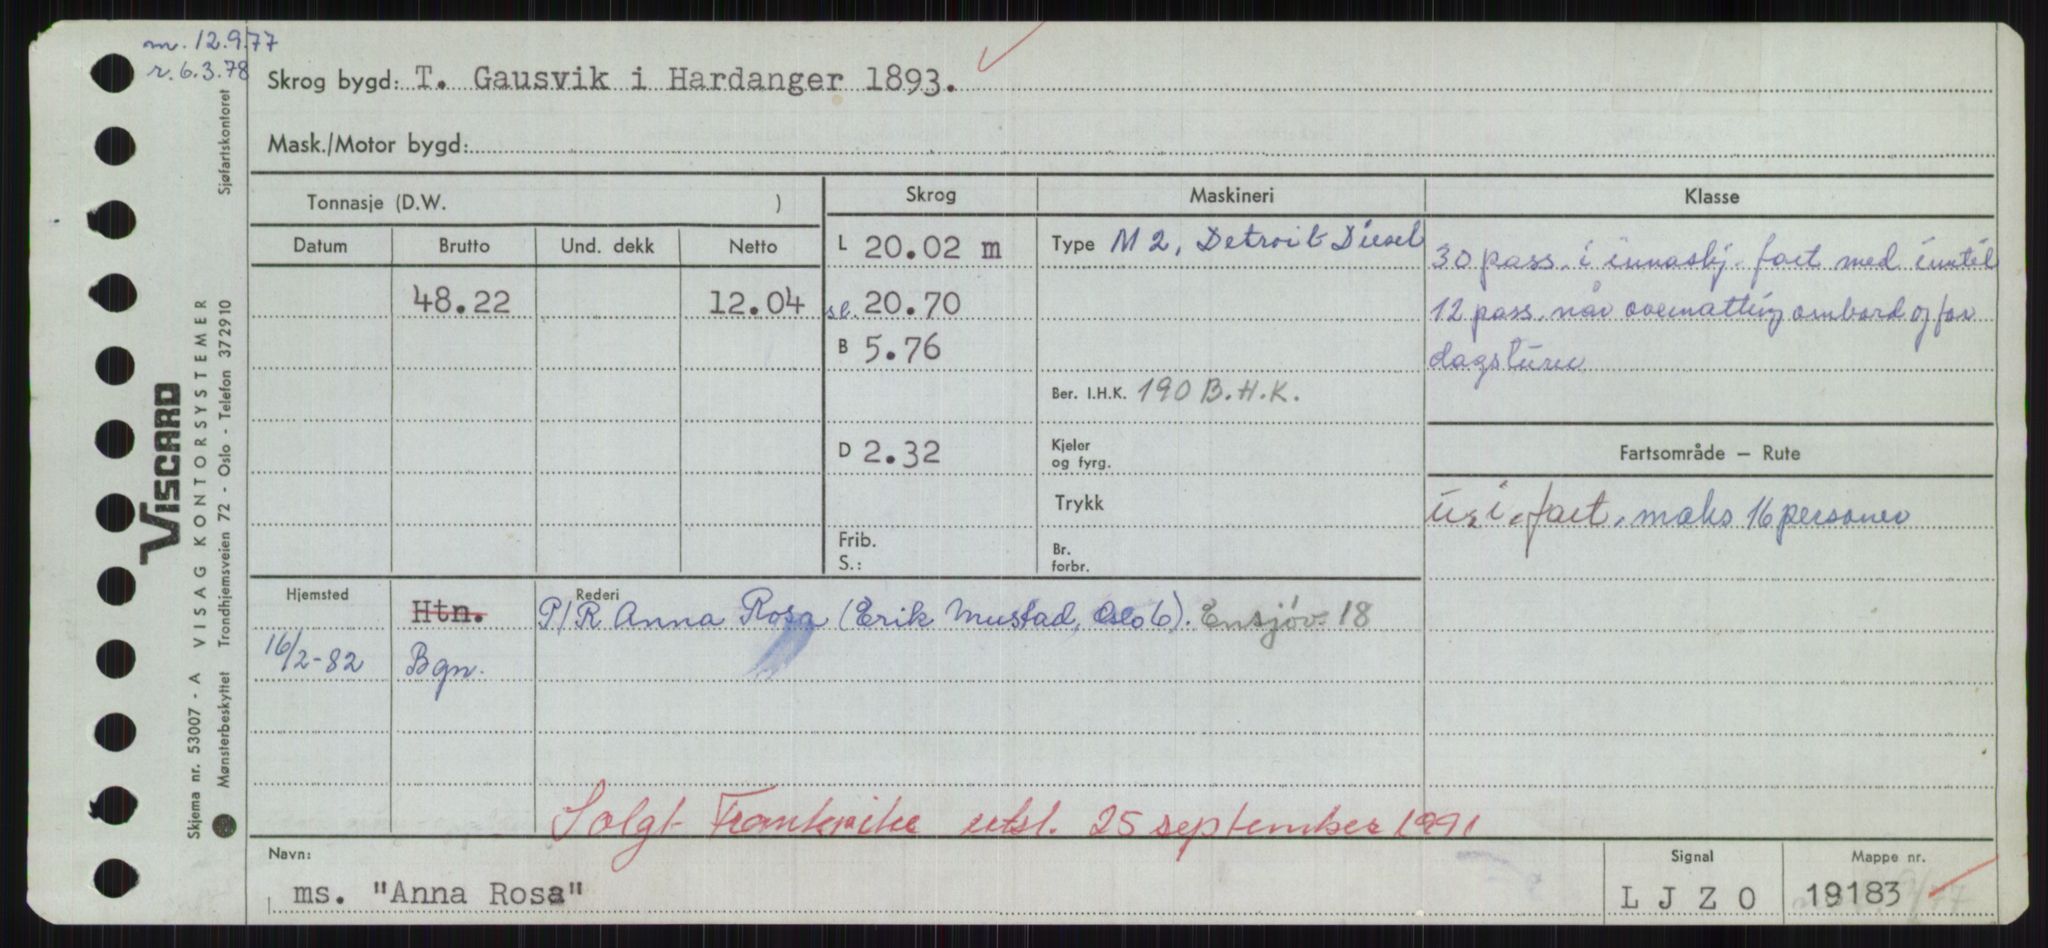 m. 12.9.77
r. 6.3.78
Skrog bygd: T. Gausvik i Hardanger 1893.
Mask./Motor bygd:
Tonnasje (D.W. )
Skrog
Maskineri
Klasse
Datum Brutto Und. dekk Netto
48.22 12.04
L 20.02 m
sl. 20.70
B 5.76
D 2.32
Frib.
S.:
Type M 2, Detroit Diesel
Ber. I.H.K. 190 B.H.K.
Kjeler
og fyrg.
Trykk
Br.
forbr.
30 pass. i innaskj. fart med inntil
12 pass. når overnatting ombord og for
dagsturer
Fartsområde — Rute
u.i. fart, maks 16 personer
Hjemsted Rederi
Htn. P/R Anna Rosa (Erik Mustad, Oslo 6). Ensjøv. 18
16/2-82 Bgn.
Solgt Frankrike utsl. 25 september 1991
Navn: Signal Mappe nr.
ms. "Anna Rosa" L J Z O 19183
Sjøfartskontoret
VISCARD
VISAG KONTORSYSTEMER
Skjema nr. 53007 - A
Mønsterbeskyttet Trondhjemsveien 72 - Oslo - Telefon 372910